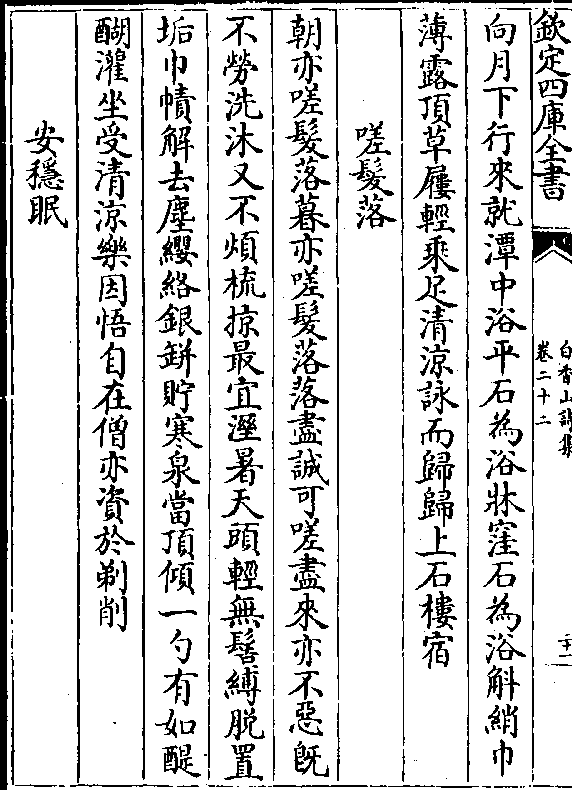 欽定四庫全書
白香山詩集
卷二十二
二十二
向月下行來就潭中浴平石為浴牀窪石為浴斛綃巾
薄露頂草屨輕乘足清涼詠而歸歸上石樓宿
嗟髮落
朝亦嗟髮落暮亦嗟髮落落盡誠可嗟盡來亦不惡既
不勞洗沐又不煩梳掠最宜溼暑天頭輕無髻縛脱置
垢巾幘解去塵纓絡銀缾貯寒泉當頂傾一勺有如醍
醐灌坐受清涼樂因悟自在僧亦資於剃削
安穩眠